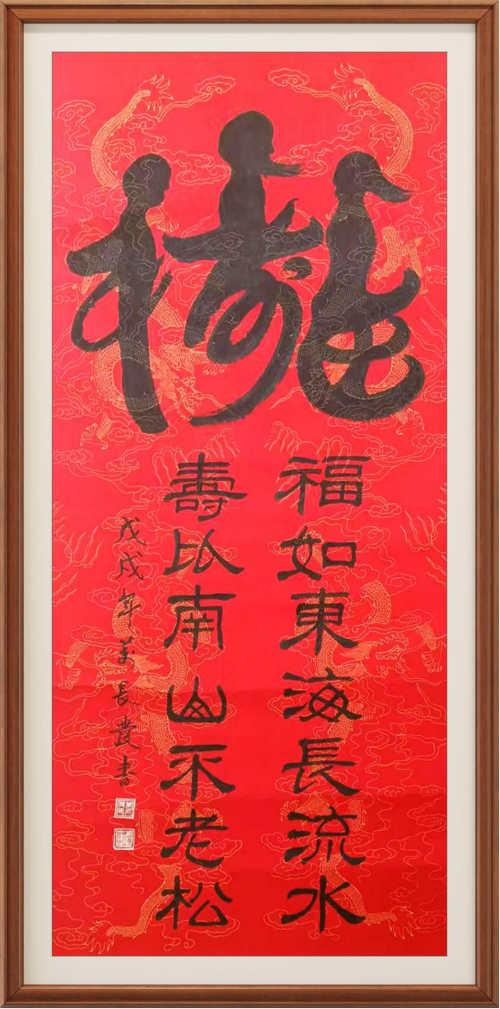 福如東海長流水
壽以南山不老松
戊戌年長發書